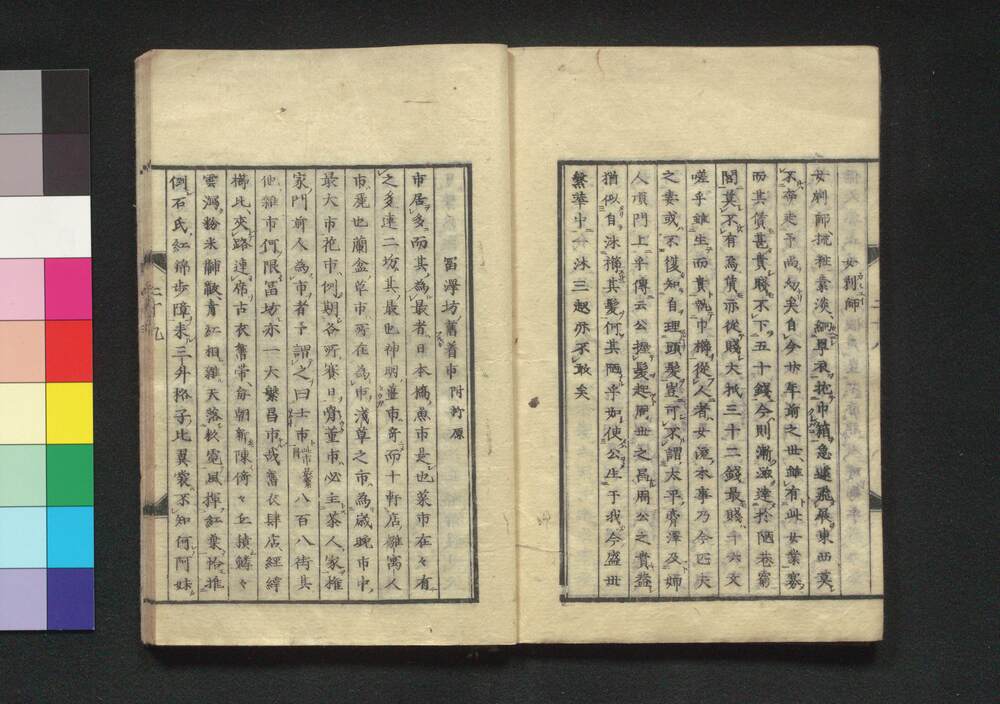 女剃師
女剃師梳雅素淡網單衣抱巾箱急遽飛屐東西莫
不奔走予尚幼矣自今廿年前之世雖有此女業寡
而其債甚貴聯不下五十錢今則漸滋達於陋巷窮
閭莫不有焉債亦從賤大抵三十二錢最賤二十六文
嗟乎雖生而貴執巾櫛從人者女流本事乃今匹夫
之妻或不復知自理頭髮豈可不謂太平膏澤及婦
人項門上乎傳云公握髮起周世之昌周公之貴蓋
猶似自沐櫛其髮何其陋乎如使公生于我今盛世
繁華中一沐三起亦不敢矣
冨澤坊舊着市 附柯原
市居多而其為最者日本橋魚市是也菜市在々有
之多連二坊其最也神明薑市奇而十軒店雛寓人
市麗也蘭盆草市所在為市淺草之市為歲晚市中
最大市花市例期各所賽日賣董市必主茶人家推
家門前人為市者予謂之曰士市八百八街其
他雜市何限冨坊亦一大繁昌市或舊衣肆店經縡
櫛比夾路連席古衣舊帶每朝新陳倚々丘積鱗々
雲瀉粉米黼黻青紅相雜天落秋霓風揮紅葉恰推
倒石氏紅錦步障未三升格子比翼裳不知何阿妹
二十九